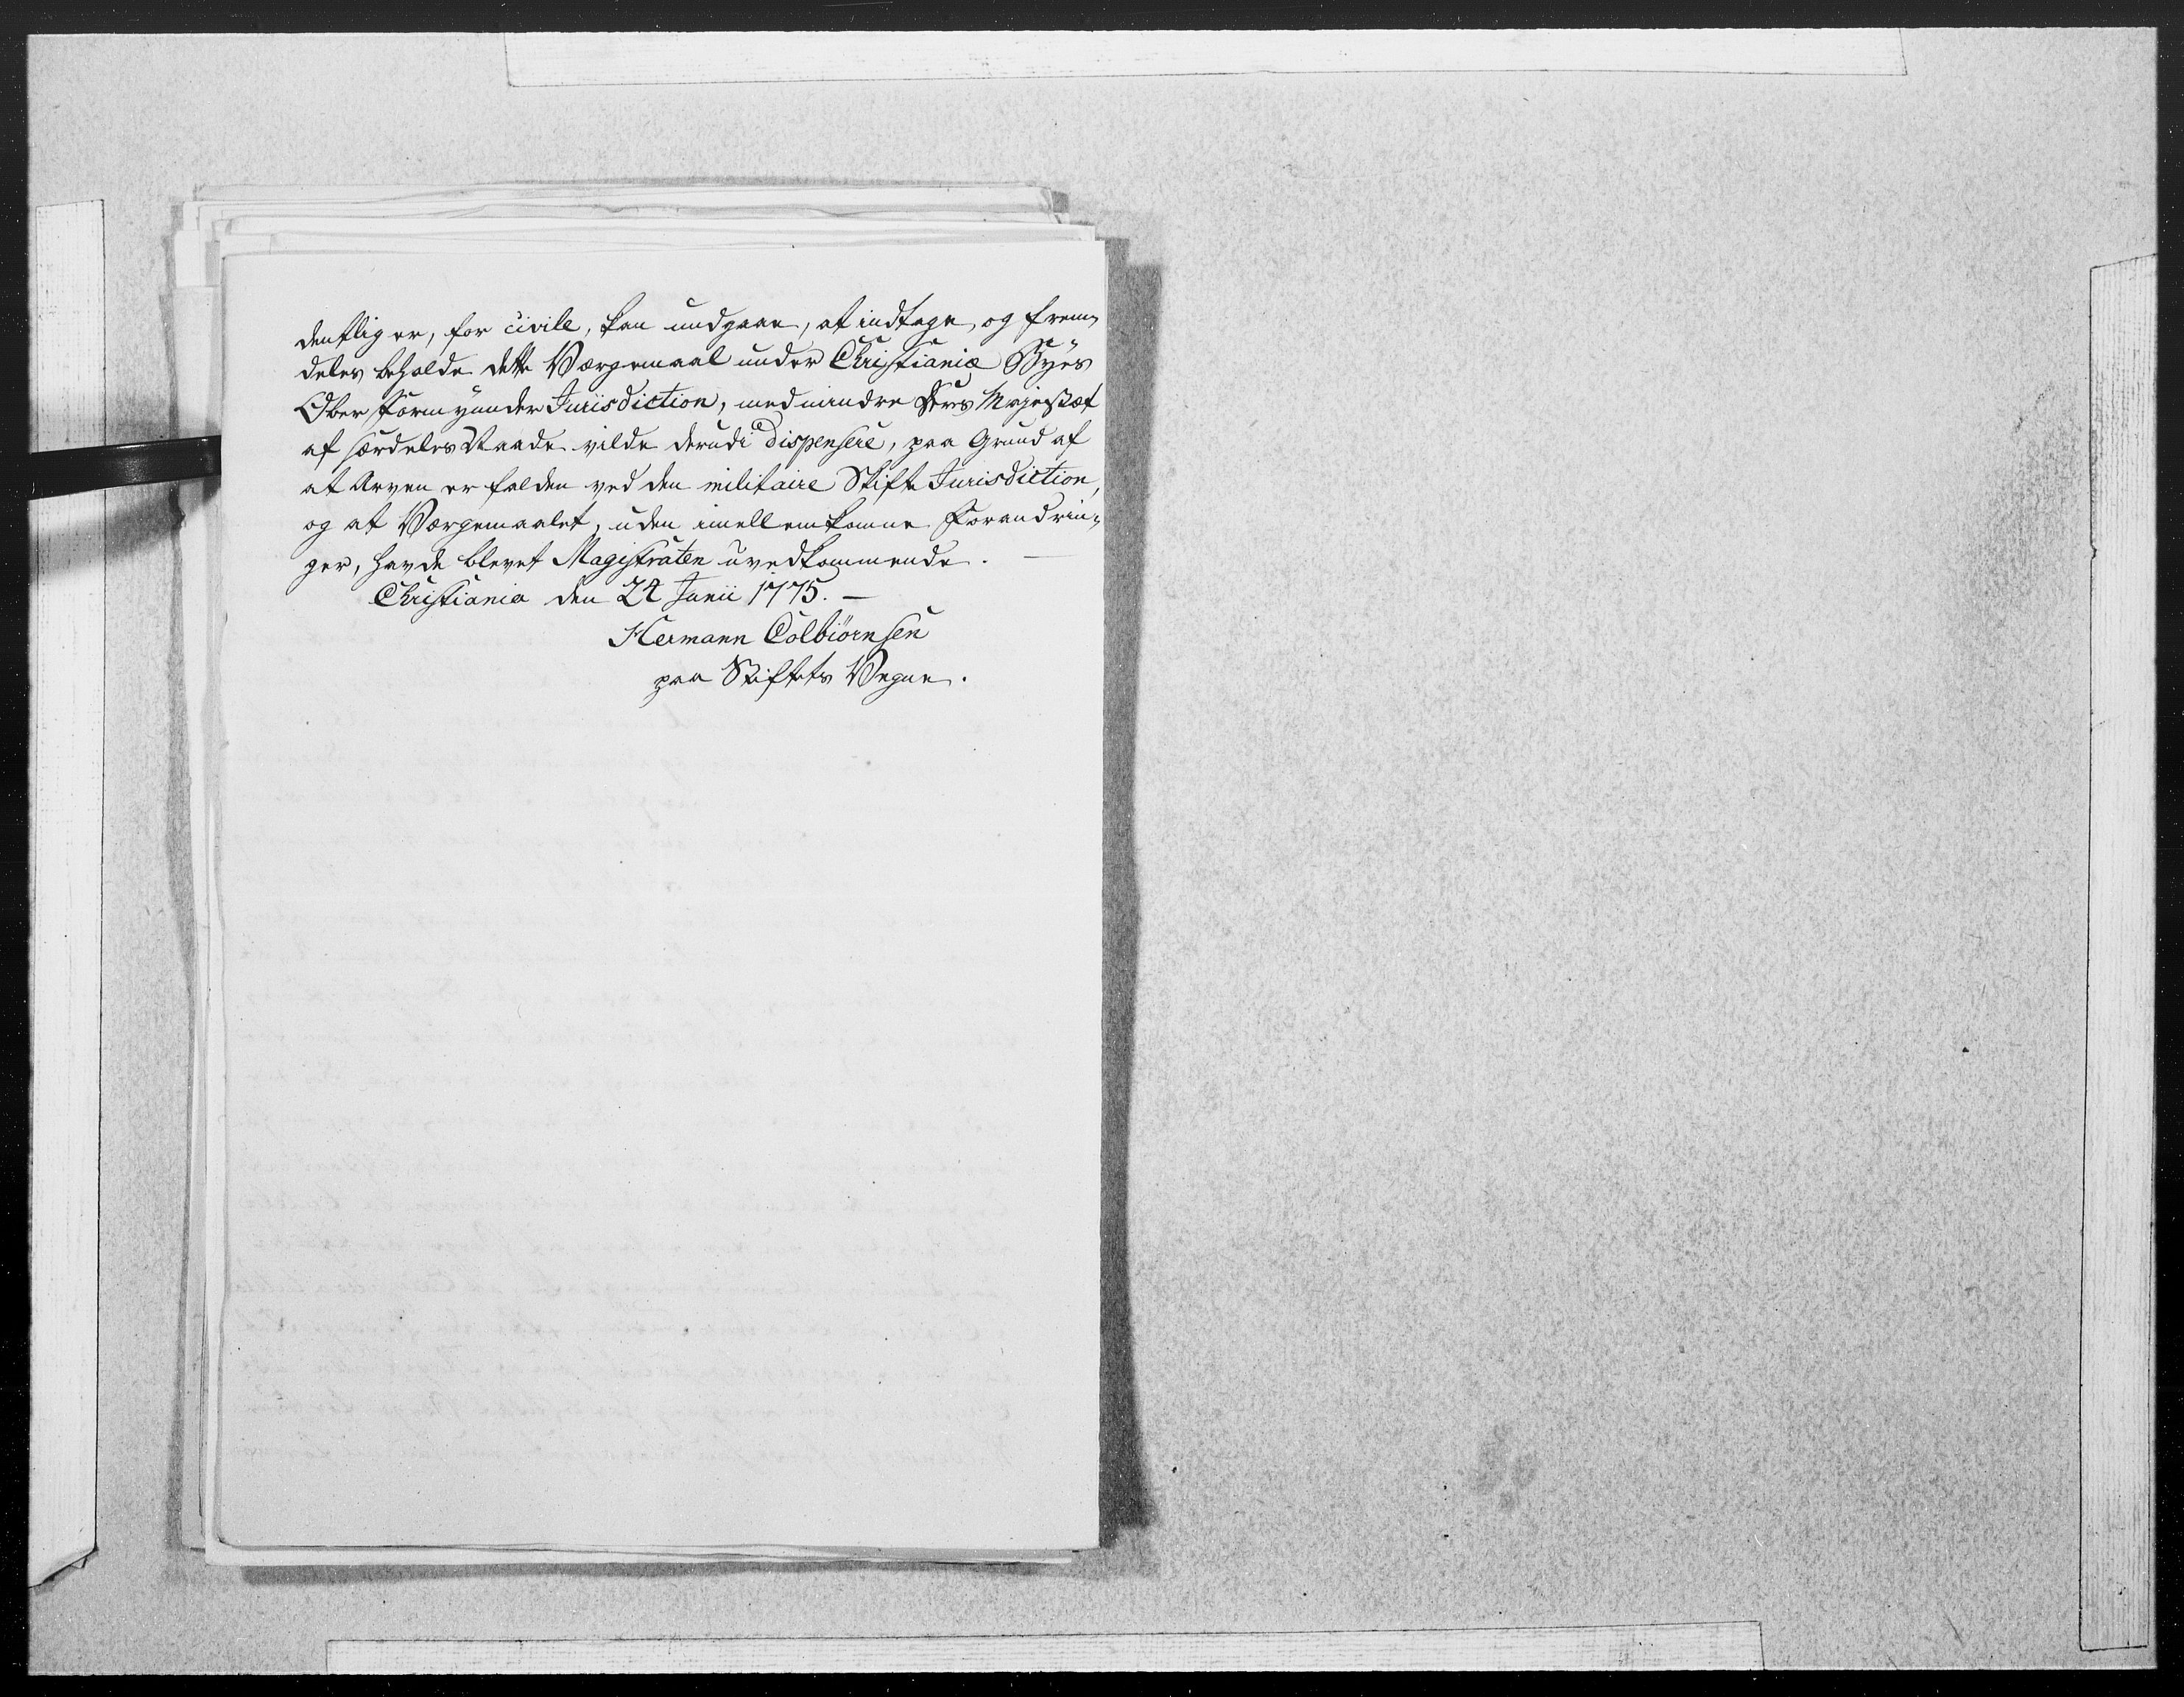 dentlig er, for civile, kan undgaae, at indtage, og frem-
deles beholde dette Værgemaal under Christianiæ Byes
Ober formynder Jurisdiction, med mindre Deres Majestæt
af særdeles Naade vilde derudi dispensere, paa Grund af
at Arven er falden ved den militaire Skifte Jurisdiction,
og at Værgemaalet, uden imellemkomne Forandrin-
ger, havde blevet Magistraten uvedkommende. —
Christiania den 24 Junii 1775. —
Hermann Colbiørnsen
paa Stiftets Vegne.